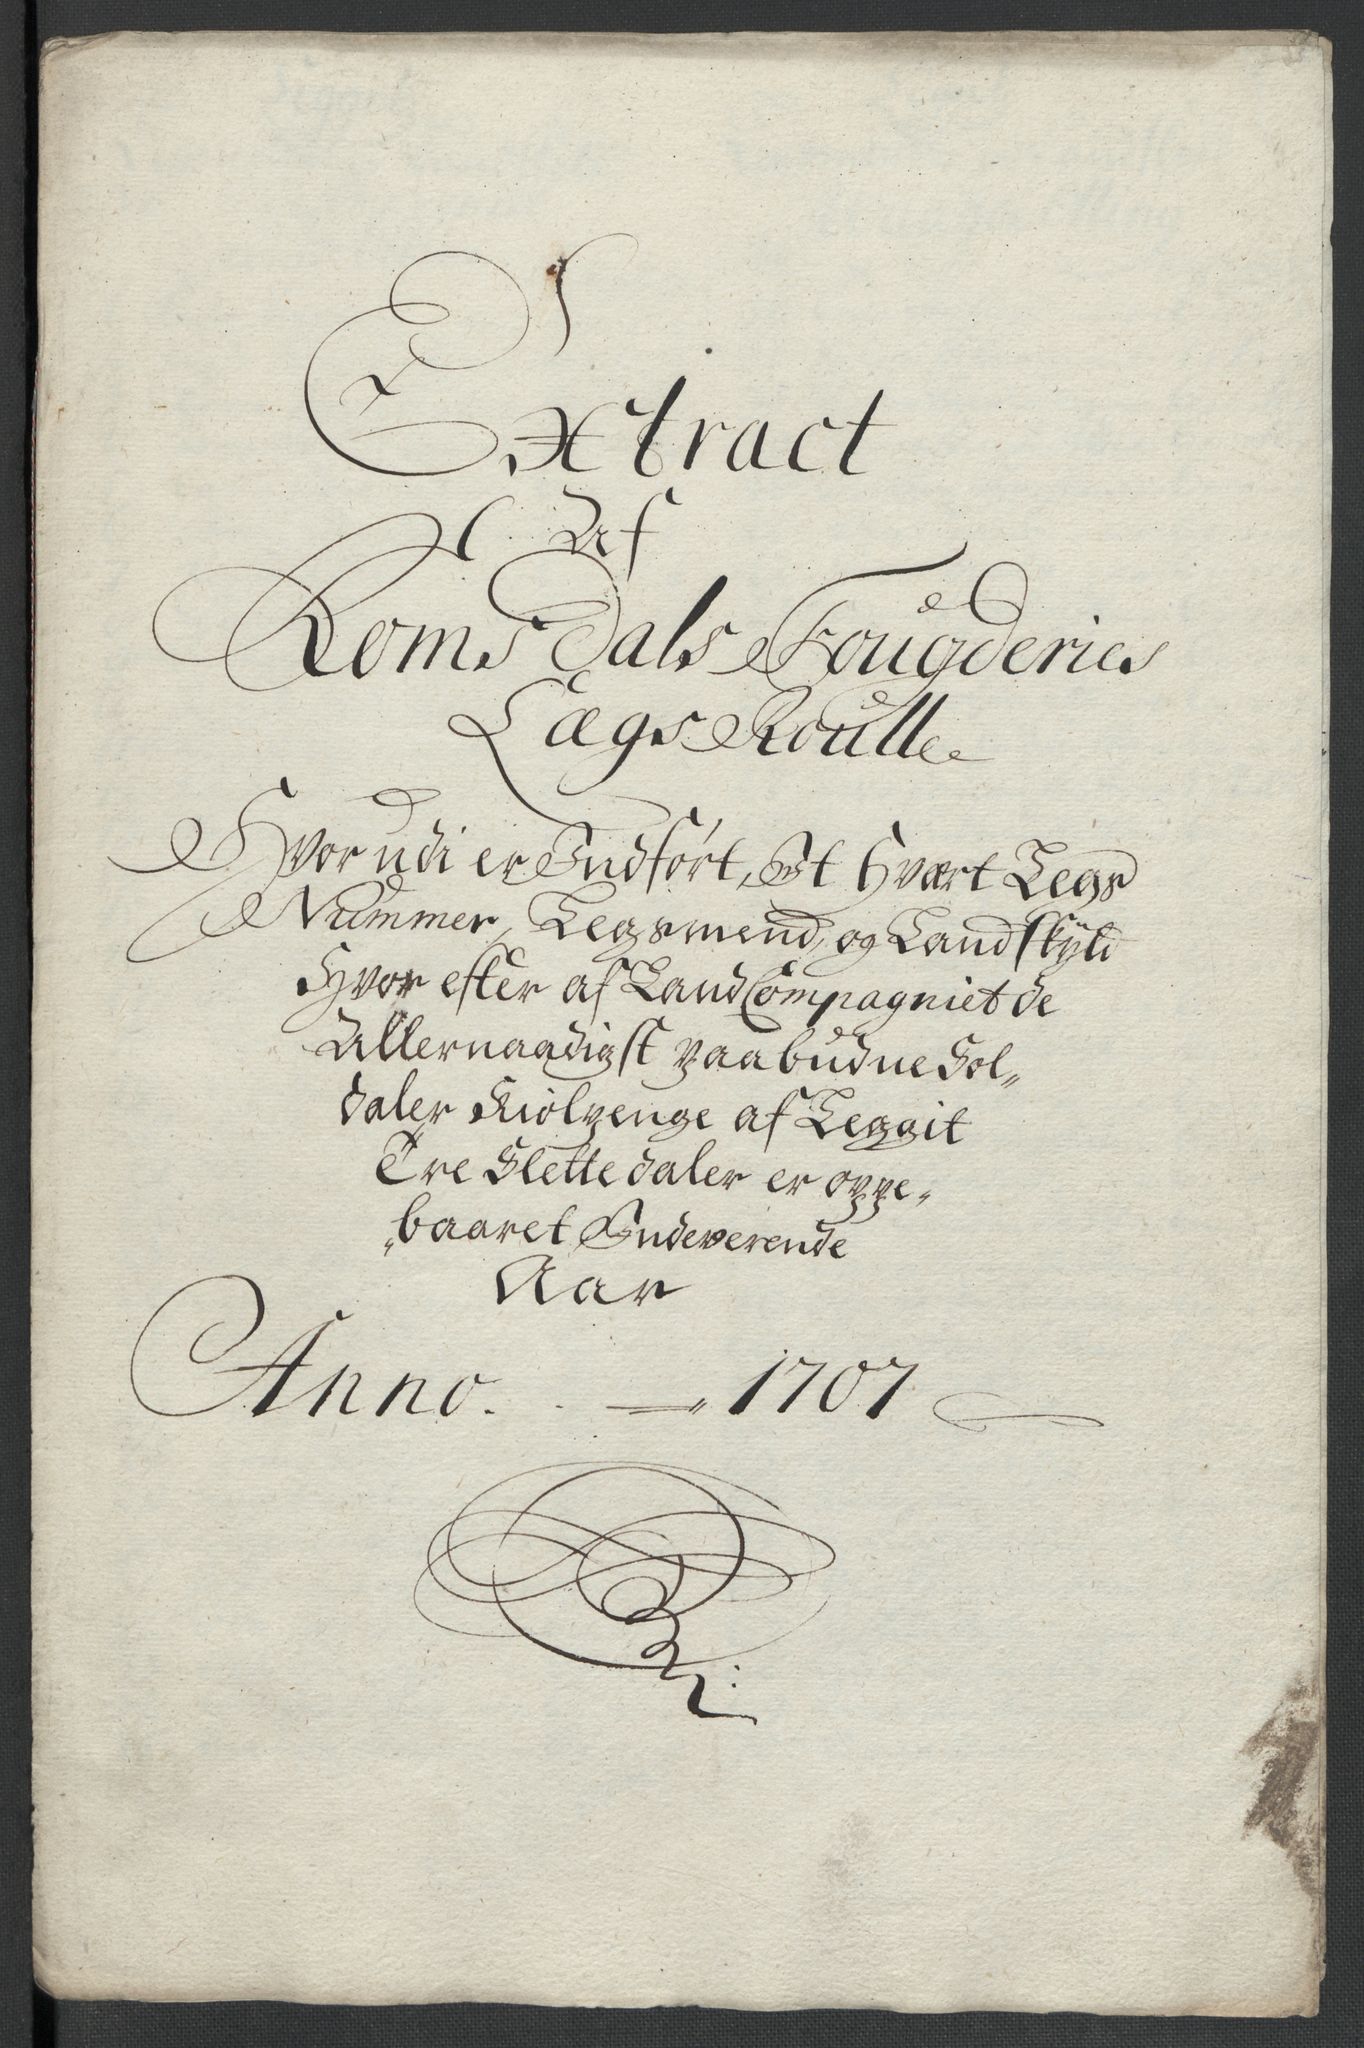 Extract
Af
Romsdals Fougderies
Lægs Roulle
Hvorudi er Indført, Et hvært Legs
Nummer, Legsmend, og Landskyld
Hvor efter af Land Compagniet de
Allernaadigst paabudne Sol„
daler Kiolpenge af Leggit
Tre Slettedaler er oppe„
„baaret Indeverende
Aar
Anno. 1707